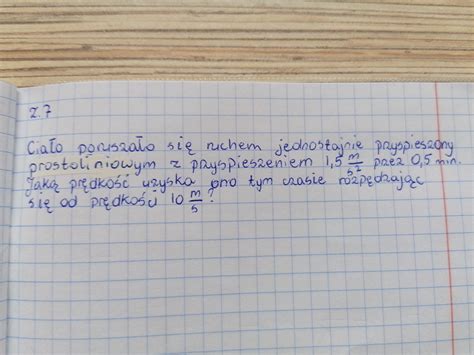 z.7
Ciało poruszało się ruchem jednostajnie przyspieszony
prostoliniowym z przyspieszeniem 1,5 m/s² przez 0,5 min.
Jaką prędkość uzyska ono tym czasie rozpędzając
się od prędkości 10 m/s?